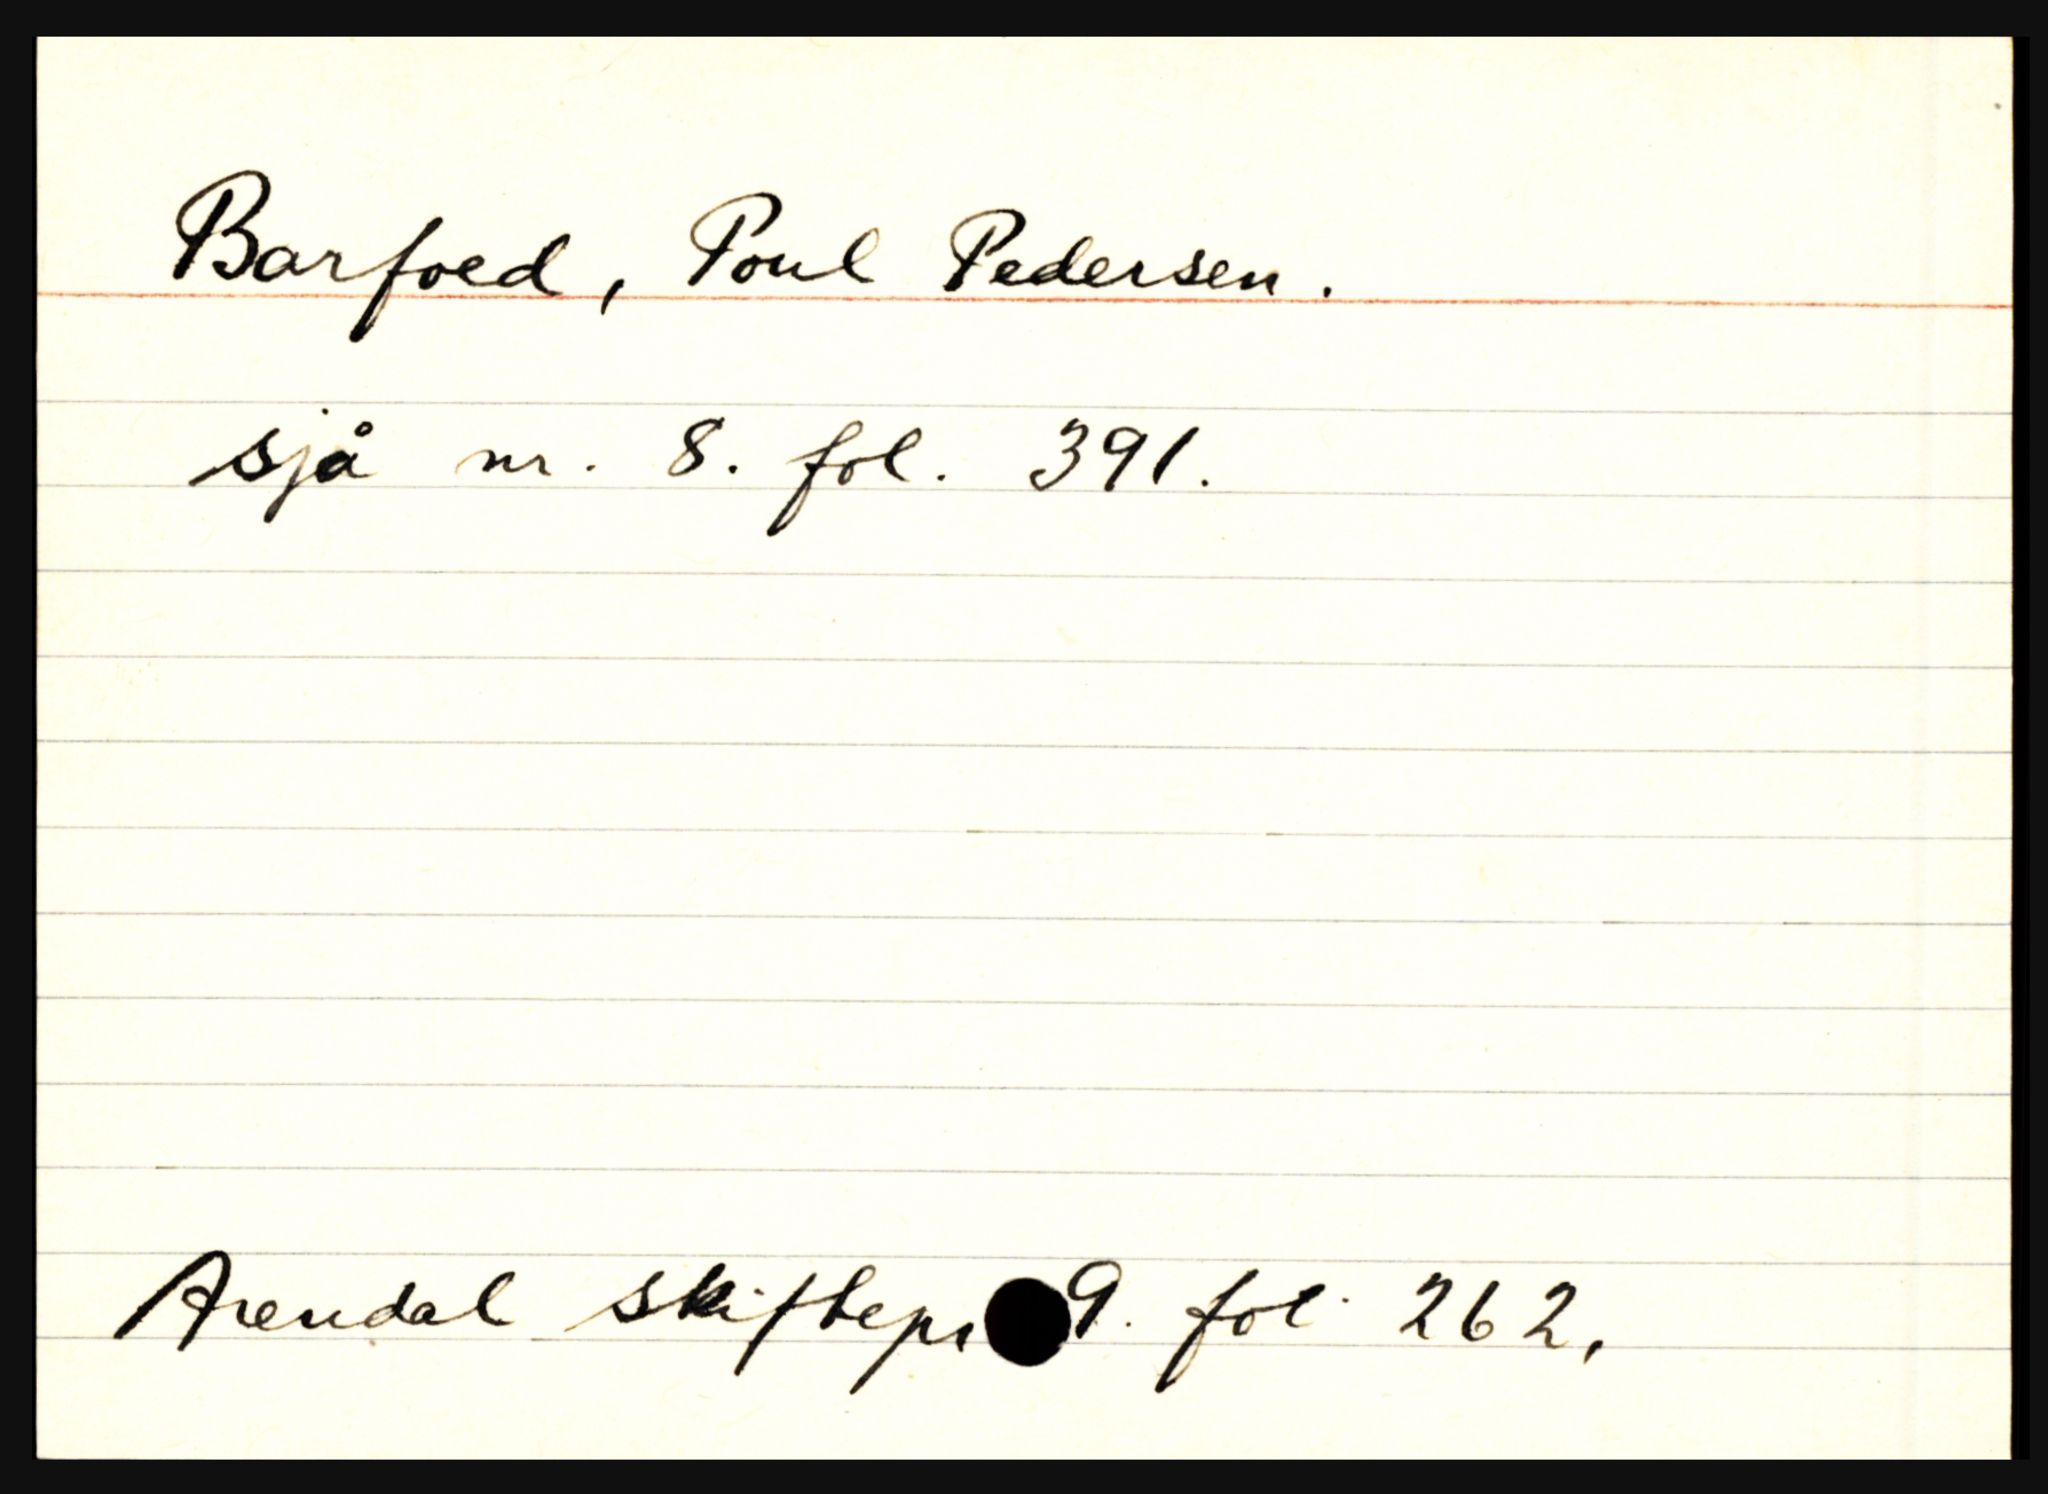 Barfoed, Poul Pedersen.
sjå nr. 8. fol. 391.
Arendal skiftepr 9. fol. 262.